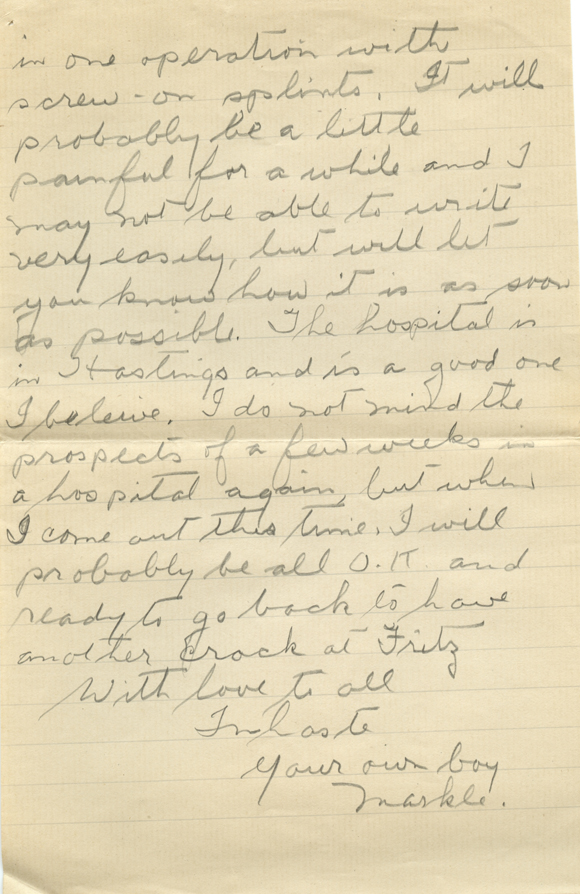 in one operation with
screw-on splints. It will
probably be a little
painful for a while and I
may not be able to write
very easily, but will let
you know how it is as soon
as possible. The hospital is
in Hastings and is a good one
I beleive. I do not mind the
prospects of a few weeks in
a hospital again, but when
I come out this time, I will
probably be all O.K. and
ready to go back to have
another crack at Fritz
With love to all
In haste
Your own boy
Markle.